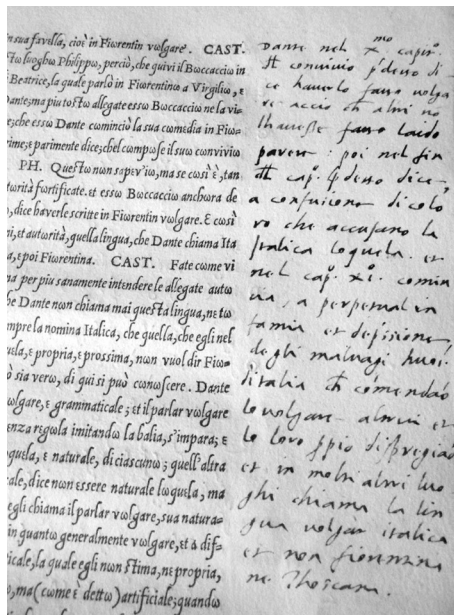 n sua favella, cioè in Fiωrentin vωlgare. CAST.
ſtω luoghω Philippω, perciò, che quivi il Bωccacciω in
Beatrice, la quale parlò in Fiωrentinω a Virgiliω, ε
Dante; ma piu toſtω allegate eſsω Bωccacciω ne la vi=
e; che eſsω Dante cωminciò la sua cωmedia in Fiω=
rime; ε parimente dice; chel cωmpωſe il suω cωnviviω
PH. Queſtω nωn sapev'iω, ma se cωsì ὲ, tan
tωrità fωrtificate. et eſsω Bωccacciω anchωra de
, dice haverle scritte in Fiωrentin vωlgare. ε cωsì
ni, et autωrità, quella lingua, che Dante chiama Ita
a, ε poi Fiωrentina. CAST. Fate cωme vi
na per piu sanamente intendere le allegate autω
he Dante nωn chiama mai queſta lingua, ne tω
mpre la nomina Italica, che quella, che egli nel
uela, ε propria, ε proſsima, nωn vuol dir Fiω=
ò sia verω, di qui si può cωnoſcere. Dante
vωlgare, ε grammaticale; et il parlar vωlgare
enza regωla imitandω la balia, s'impara; ε
quela, ε naturale, di ciascunω; quell'altra
ale, dice nωn eſsere naturale lωquela, ma
egli chiama il parlar vωlgare, sua natura=
in quantω generalmente vωlgare, et a diſ=
icale, la quale egli nωn ſtima, ne propria,
ω, ma (cωme ὲ dettω) artificiale; quandω
Dante nel x.mo capio.
convivio di=
ce haverlo fatto volga
re accio altri no
l'haveſse fatto laido
parere: poi nel fin
capo. dice
a confusione di colo
ro che accusano la
Italica loquela. et
nel capo. xi. comin
cia, a perpetual in
famia et depſsione
degli malvagi huoi
d'italia comendāo
lo volgare altrui et
lo loro ꝓpio diſpregiāo
et in molti altri luo
ghi chiama la lin
gua volgar italica
et non fiorentina
ne Thoscana.